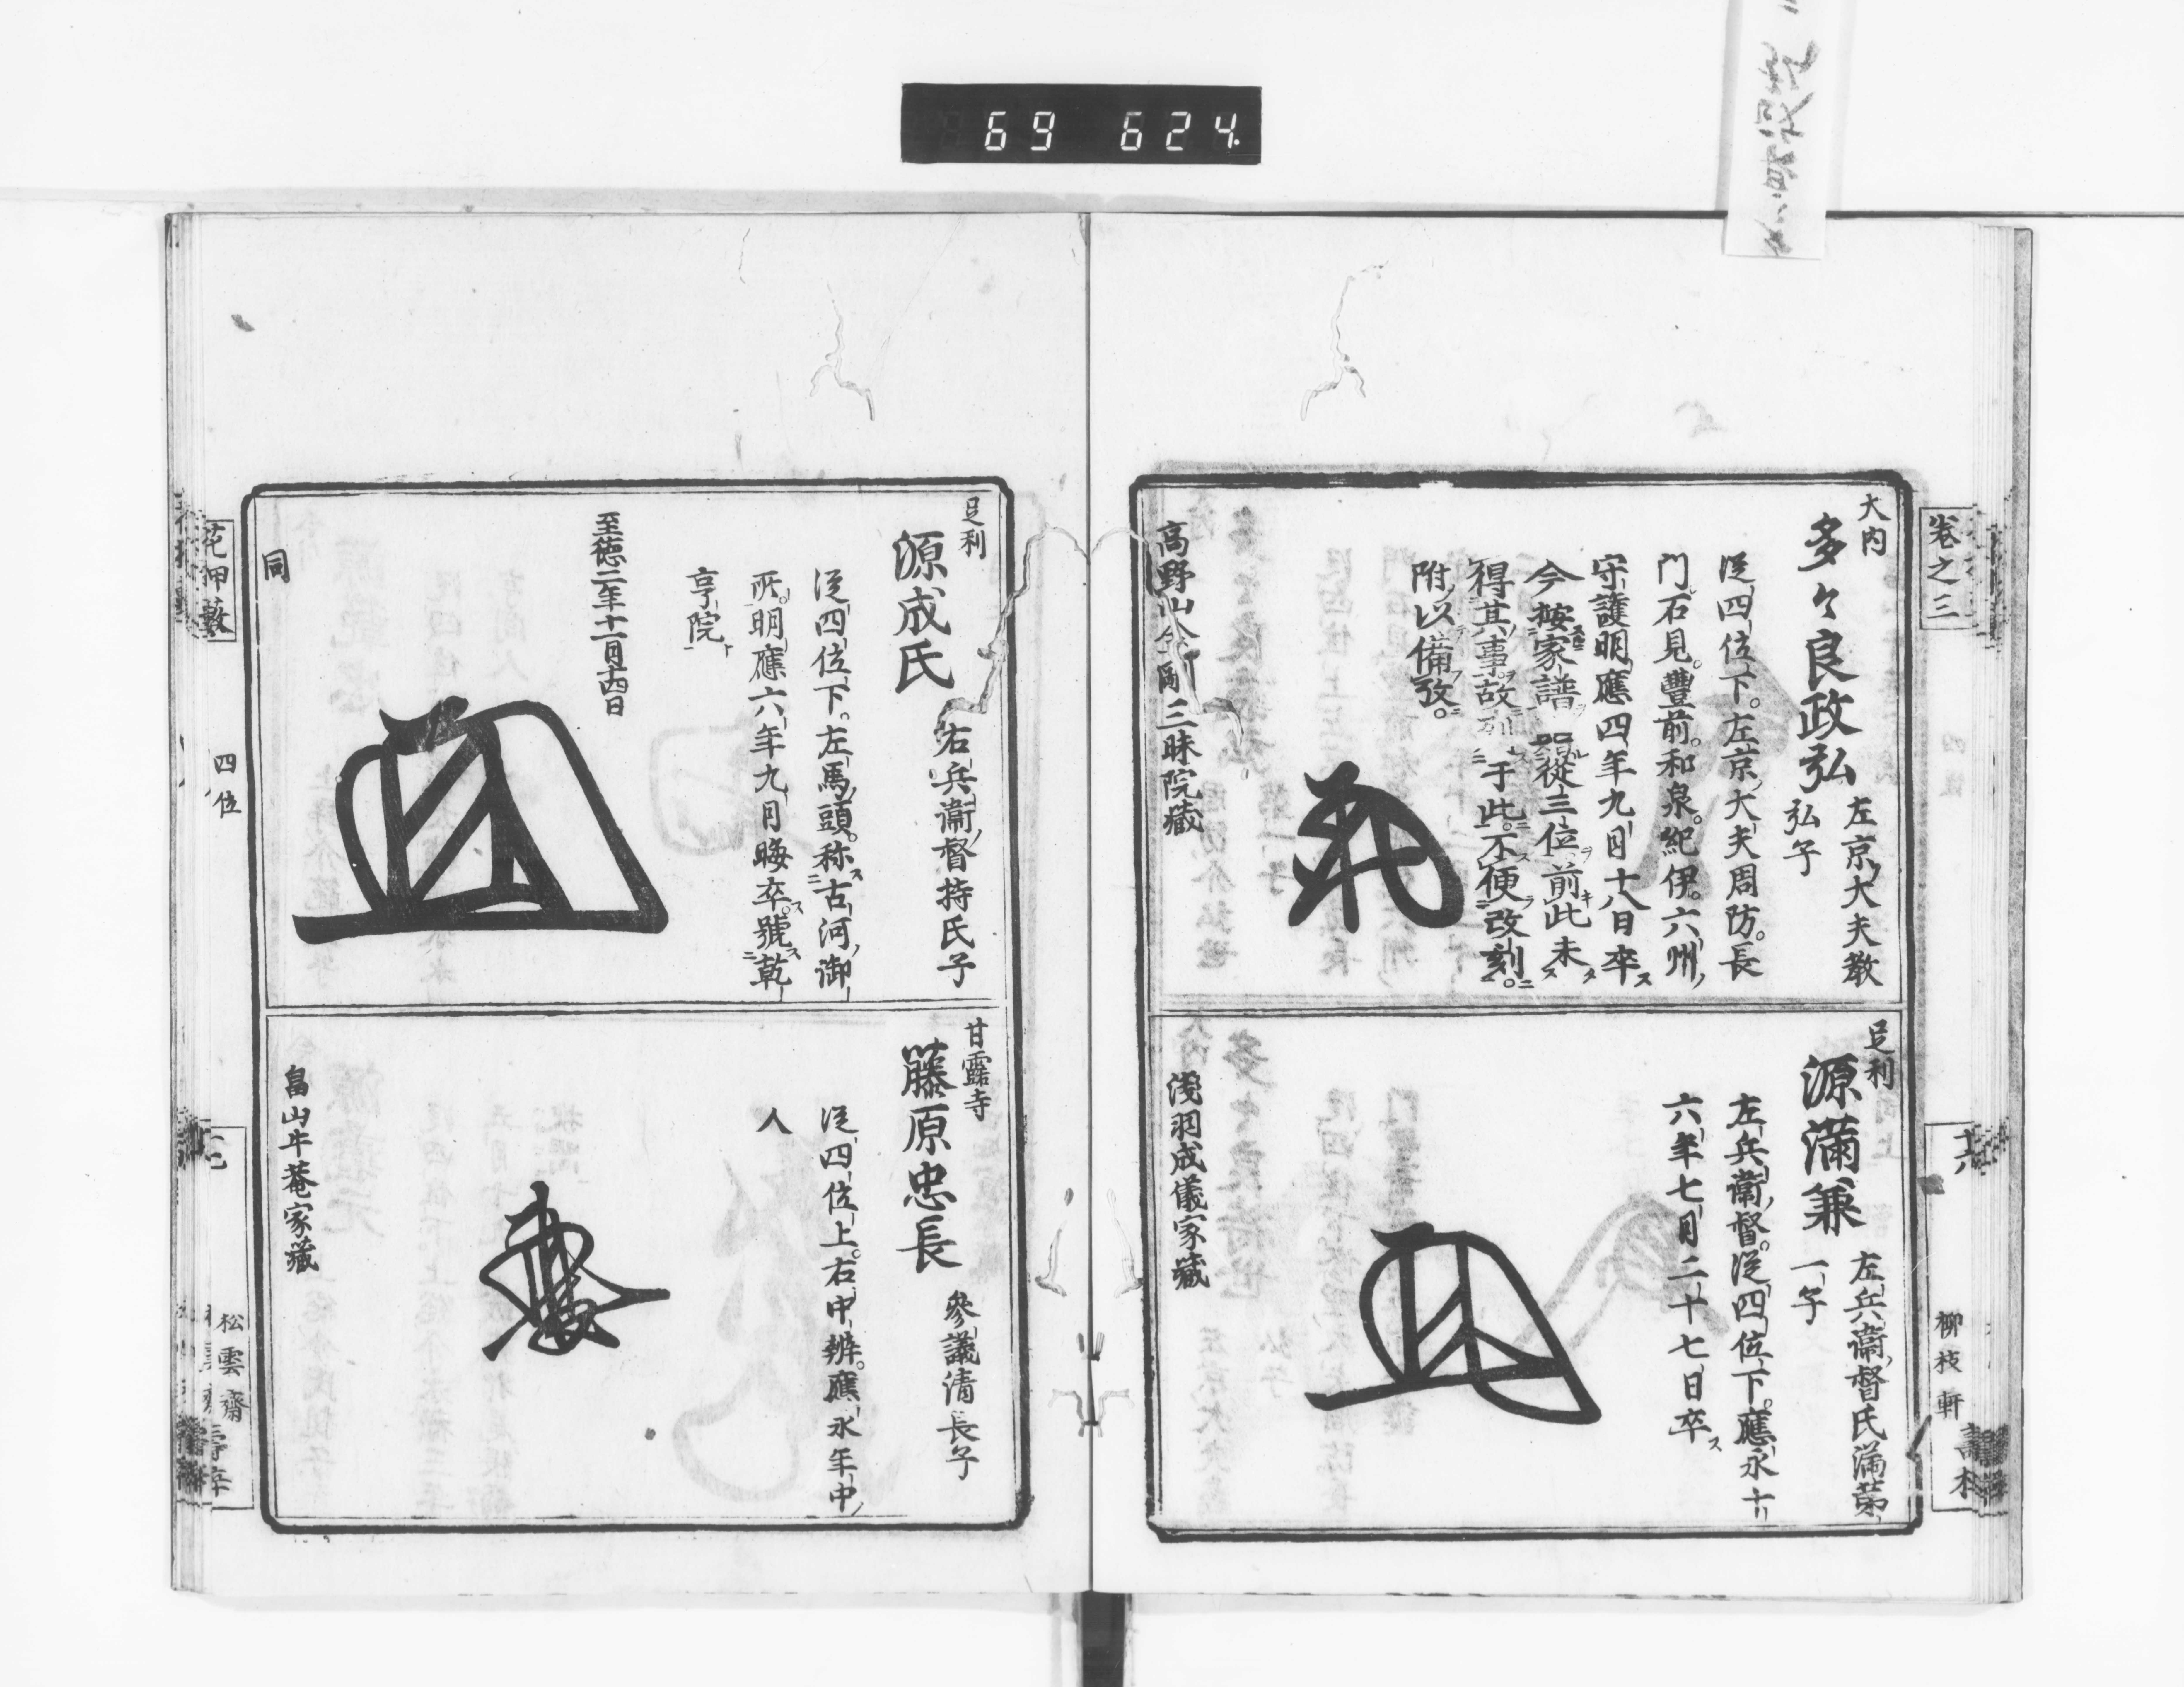 69 624
卷之三
大内
多々良政弘
左京大夫教
弘子
從四位下。左京大夫周防。長
門。石見。豐前。和泉。紀伊。六州
守護明應四年九月十八日卒
今按家譜
從三位前此未
得其事故列于此。不便改刻。
附以備攷。
高野山
三昧院藏
足利
源滿兼
左兵衞督氏滿第
一子
左兵衞督。從四位下。應永十
六年七月二十七日卒
淺羽成儀家藏
十六
柳枝軒
足利
源成氏
右兵衞督持氏子
從四位下。左馬頭。称古河御
所。明應六年九月晦卒。號乾
亨院
至德二年十一月十四日
同
甘露寺
藤原忠長
參議清長子
從四位上。右中辨。應永年中
人
畠山牛菴家藏
花押藪
四位
松雲齋